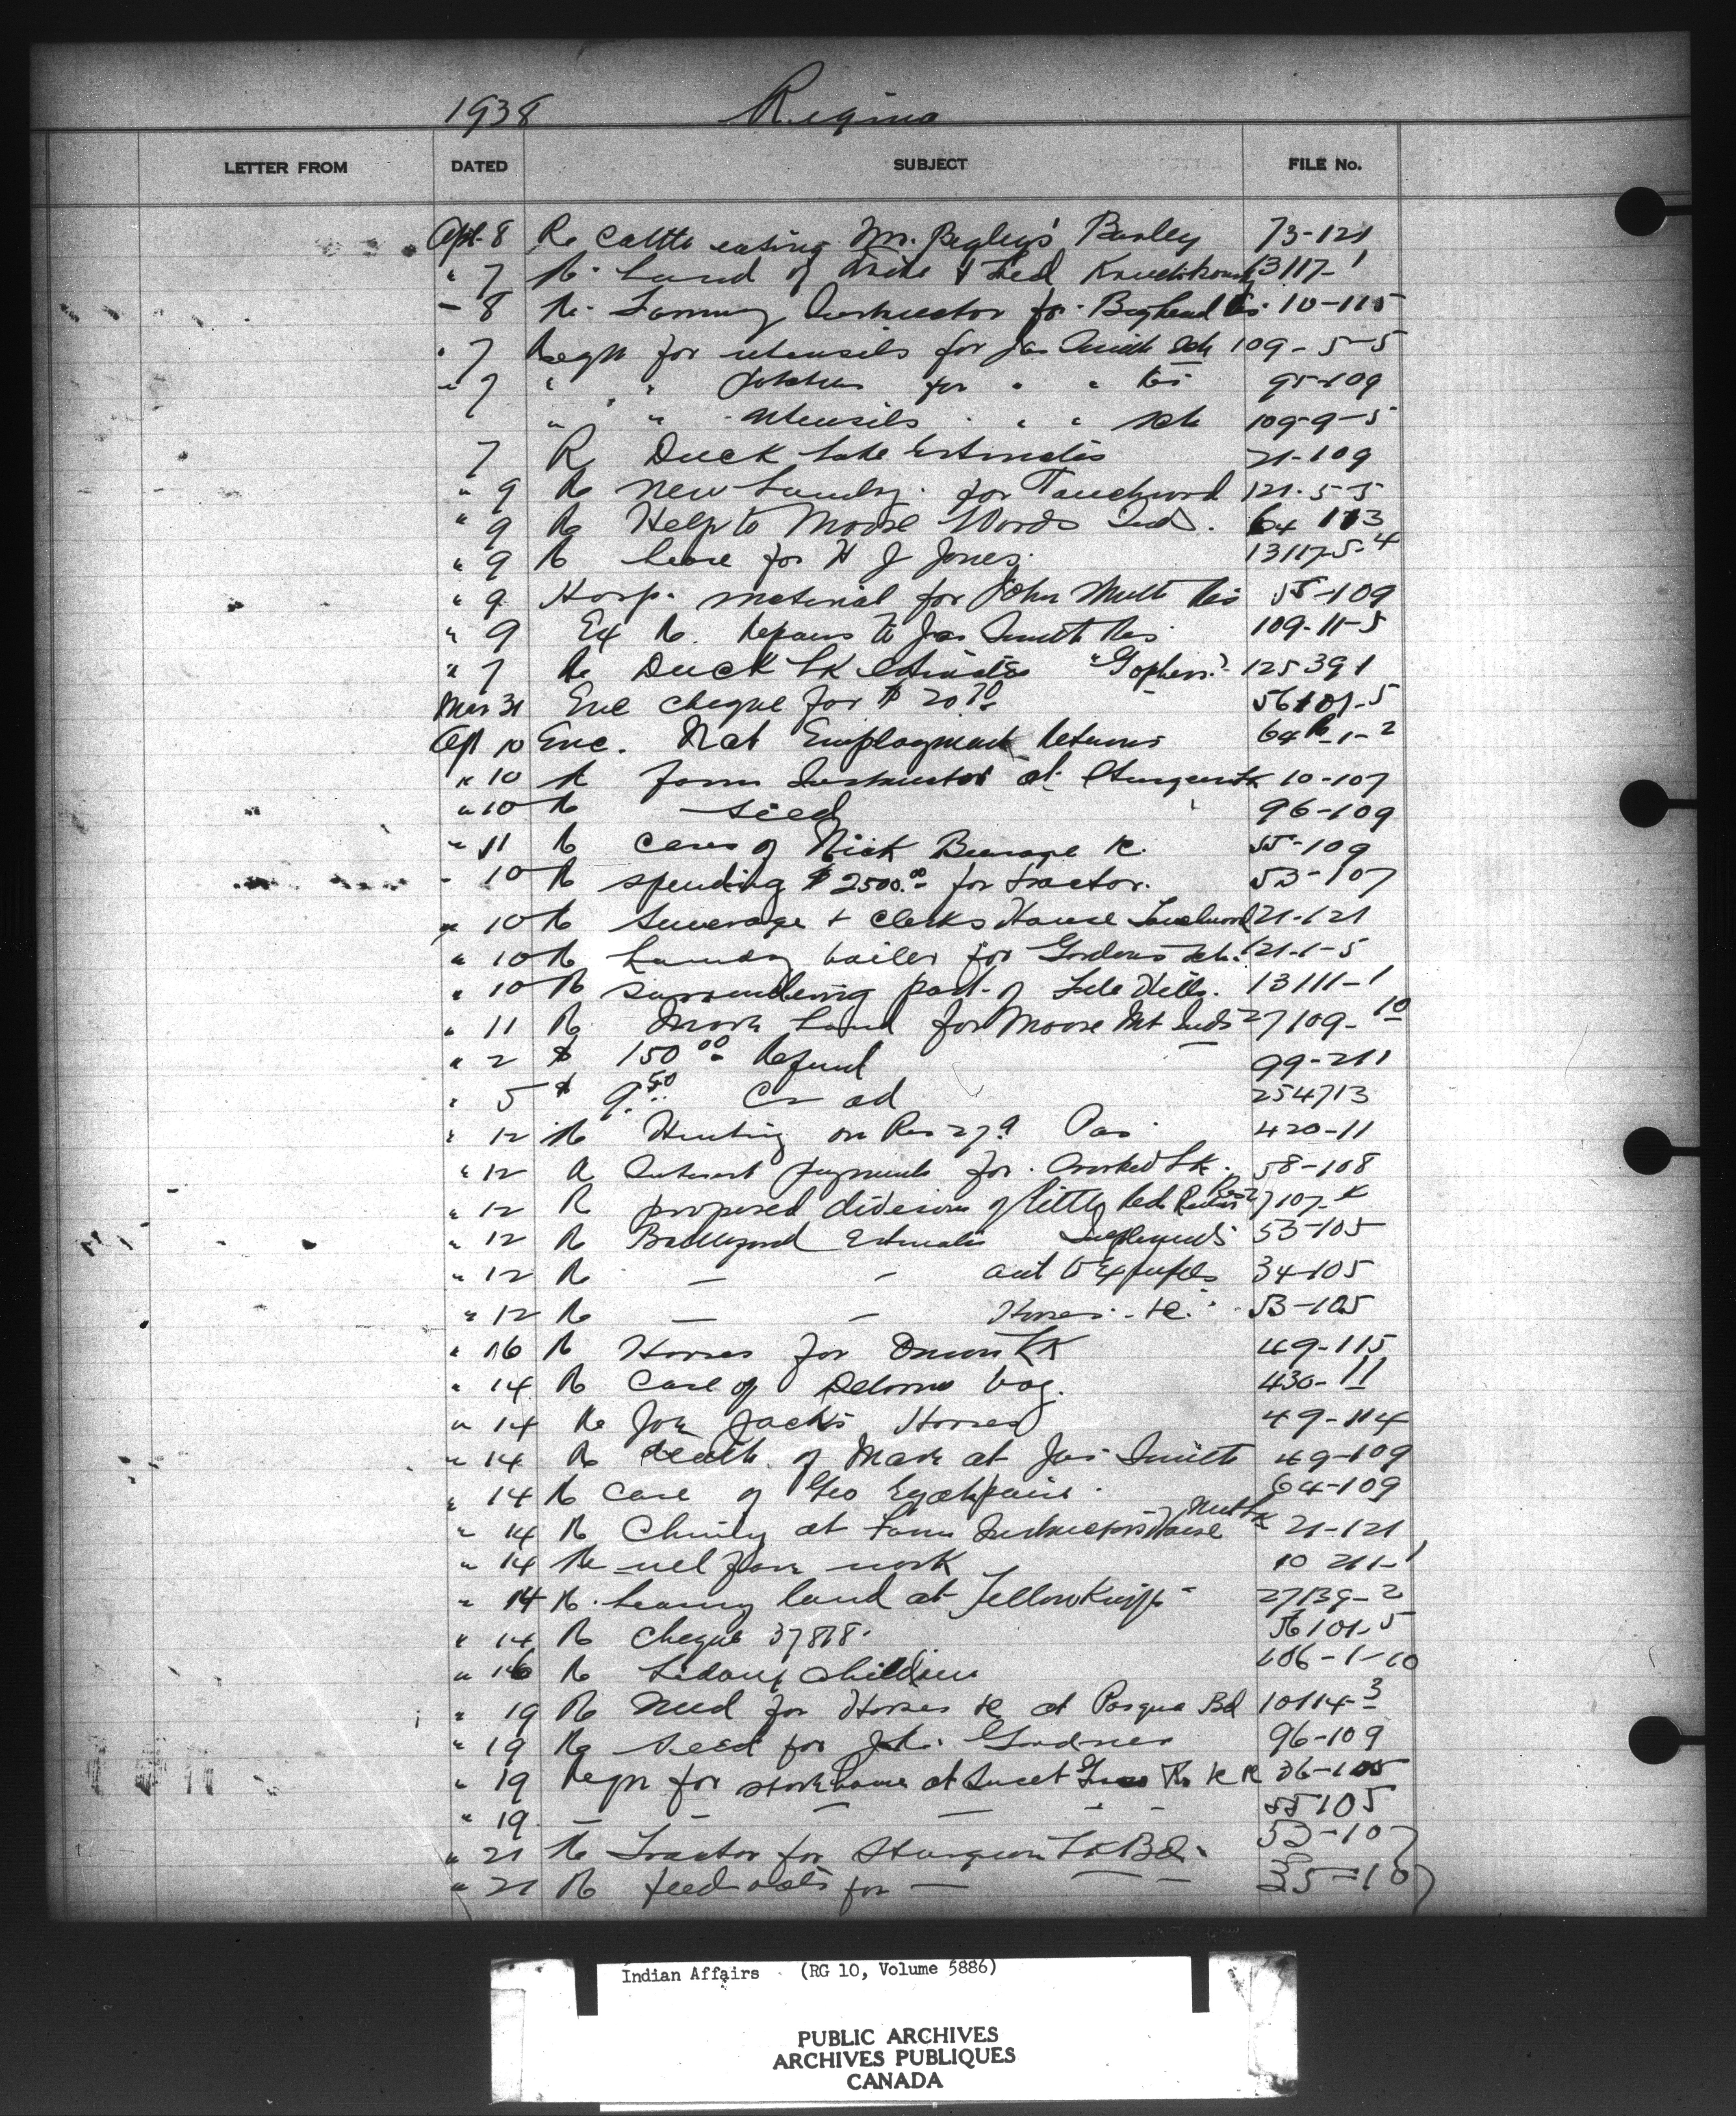 1938 Regina
LETTER FROM DATED SUBJECT FILE No.
Apl. 8 Re Cattle eating Mr. Begley's Barley 73-121
" 7 Re Land of & Fred 13117-1
- 8 Re Farming Instructor for Bighead Res 10-115
" 7 Reqn for utensils for Jas Smith Sch 109-5-5
" 7 " " for " " Res 95-109
" " utensils " " " Sch 109-9-5
7 R Duck Lake Estimates 21-109
" 9 Re new Laundry for Touchwood 121-5-5
" 9 Re Help to Moose Woods Inds. 64 113
" 9 R lease for H J Jones. 13117-5-4
" 9 Hosp. material for John Smith Res 55-109
" 9 Ex Re. Repairs to Jas Smith Res 109-11-5
" 7 Re Duck LK Estimates "Gophers" 125391
Mar 31 Enc cheque for $ 20.70 56101-5
Apl 10 Enc. Nat Employment Returns 64 -1-2
" 10 R farm Instructor at Sturgeon Lk 10-107
" 10 R seed 96-109
" 11 R case of Nick 55-109
- 10 R spending $2500.00 for tractor. 53-107
" 10 R Sewerage + Clerks House Touchwood 21-121
" 10 R Laundry boiler for Gordons Sch. 121-1-5
" 10 R surrendering part of File Hills. 13111-1
" 11 R More Land for Moose Mt Inds 27109-10
" 2 $ 150.00 Refund 99-211
" 5 $ 9.50 ad 254713
" 12 R Hunting on Res 27A Pas 420-11
" 12 R Interest payments for Crooked LK. 58-108
" 12 R proposed division of Little Red River Res 27107-
" 12 R Battleford Estimates Implements 53-105
" 12 R — — aid to Ex pupils 34-105
" 12 R — — Horses &c. 53-105
" 16 R Horses for Onion LK 49-115
" 14 R Case of Delorme 430-11
" 14 Re Joe Jack's Horses 49-114
" 14 R death of Mare at Jas Smith 49-109
" 14 R Case of Geo 64-109
" 14 R Chimney at Farm Instructors House 21-121
" 14 Re work 10 211-1
" 14 R. leasing land at Yellowknife 27139-2
" 14 R Cheque 37878. 56101-5
" 16 R children 106-1-10
" 19 R Need for Horses &c at Pasqua Bd 10114-3
" 19 Re Seed for 96-109
" 19 Reqn for storehouse at Sweet Grass 36-105
" 19 — — — — — — 55105
" 21 R Tractor for Sturgeon LK Bd. 53-107
" 21 R feed oats for — — — 35-107
Indian Affairs (RG 10, Volume 5886)
PUBLIC ARCHIVES
ARCHIVES PUBLIQUES
CANADA